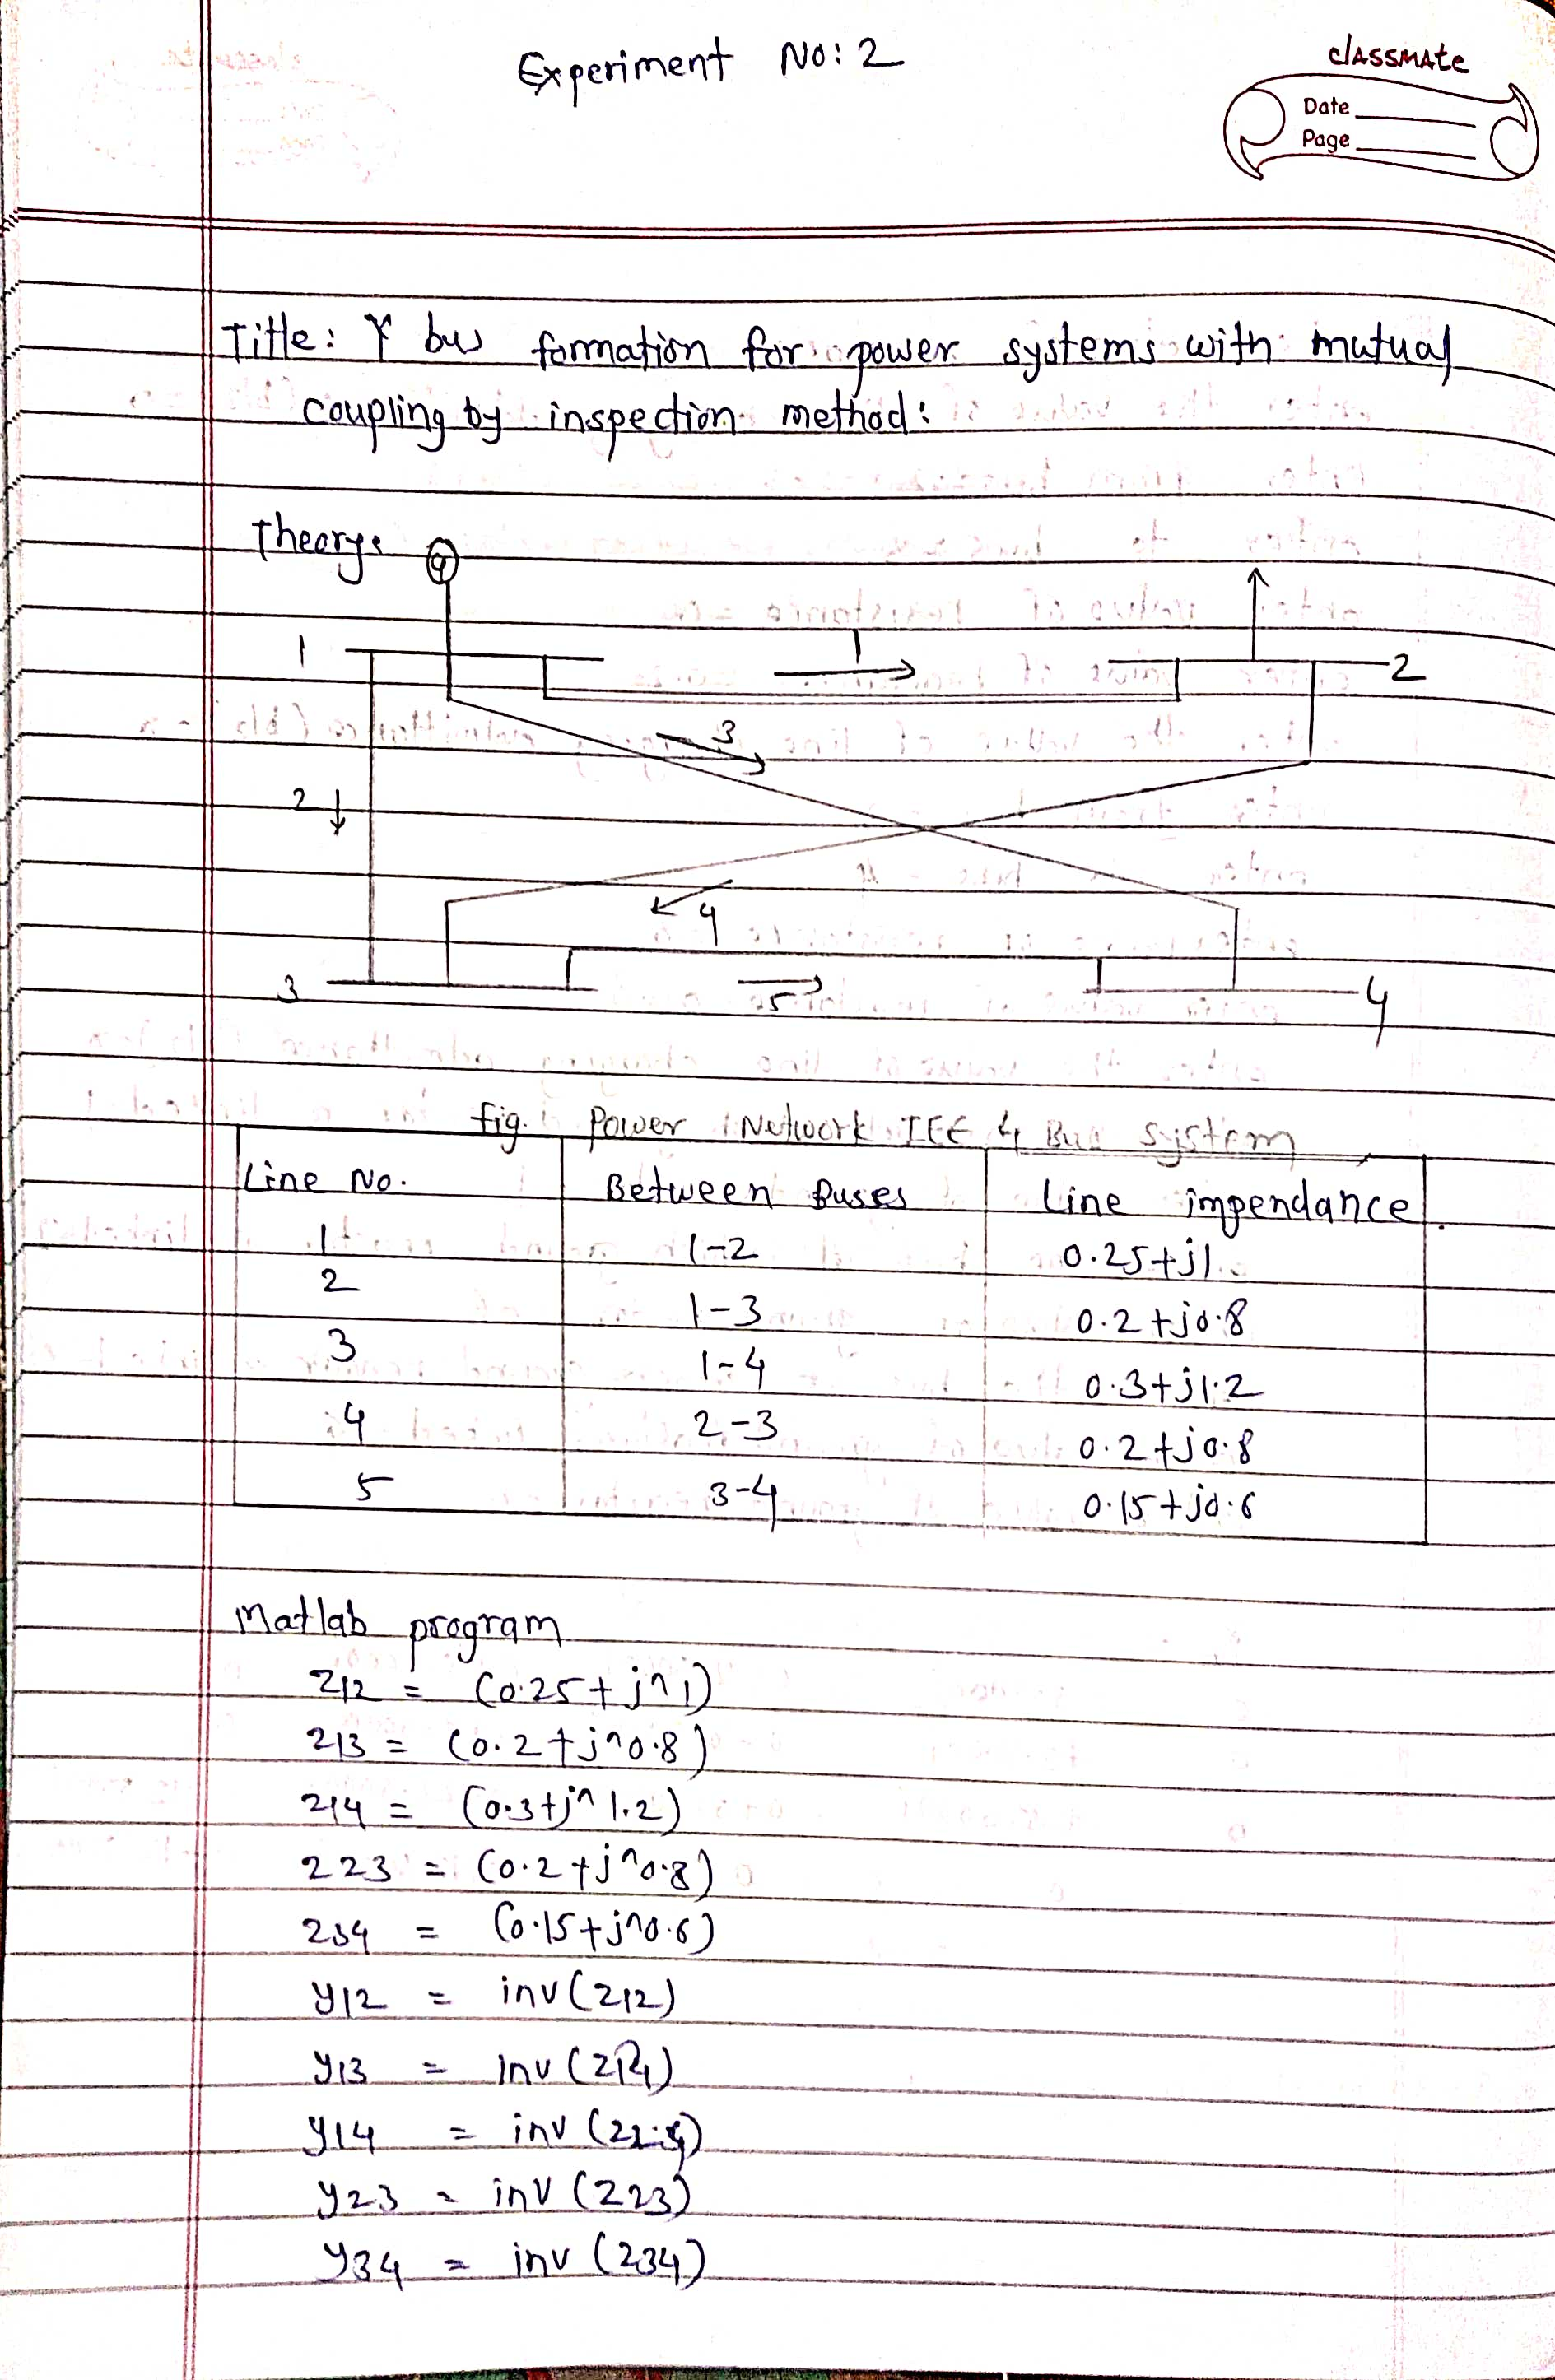 Experiment No: 2
classmate
Date
Page
Title: Y bus formation for power systems with mutual
coupling by inspection method:
Theory:
G
1
1
2
3
2
4
3
5
4
fig. Power Network IEE 4 Bus System
Line No. Between Buses Line impendance
1 1-2 0.25+j1
2 1-3 0.2+j0.8
3 1-4 0.3+j1.2
4 2-3 0.2+j0.8
5 3-4 0.15+j0.6
Matlab program
z12 = (0.25+j^1)
z13 = (0.2+j^0.8)
z14 = (0.3+j^1.2)
z23 = (0.2+j^0.8)
z34 = (0.15+j^0.6)
y12 = inv(z12)
y13 = inv
y14 = inv
y23 = inv(z23)
y34 = inv(z34)